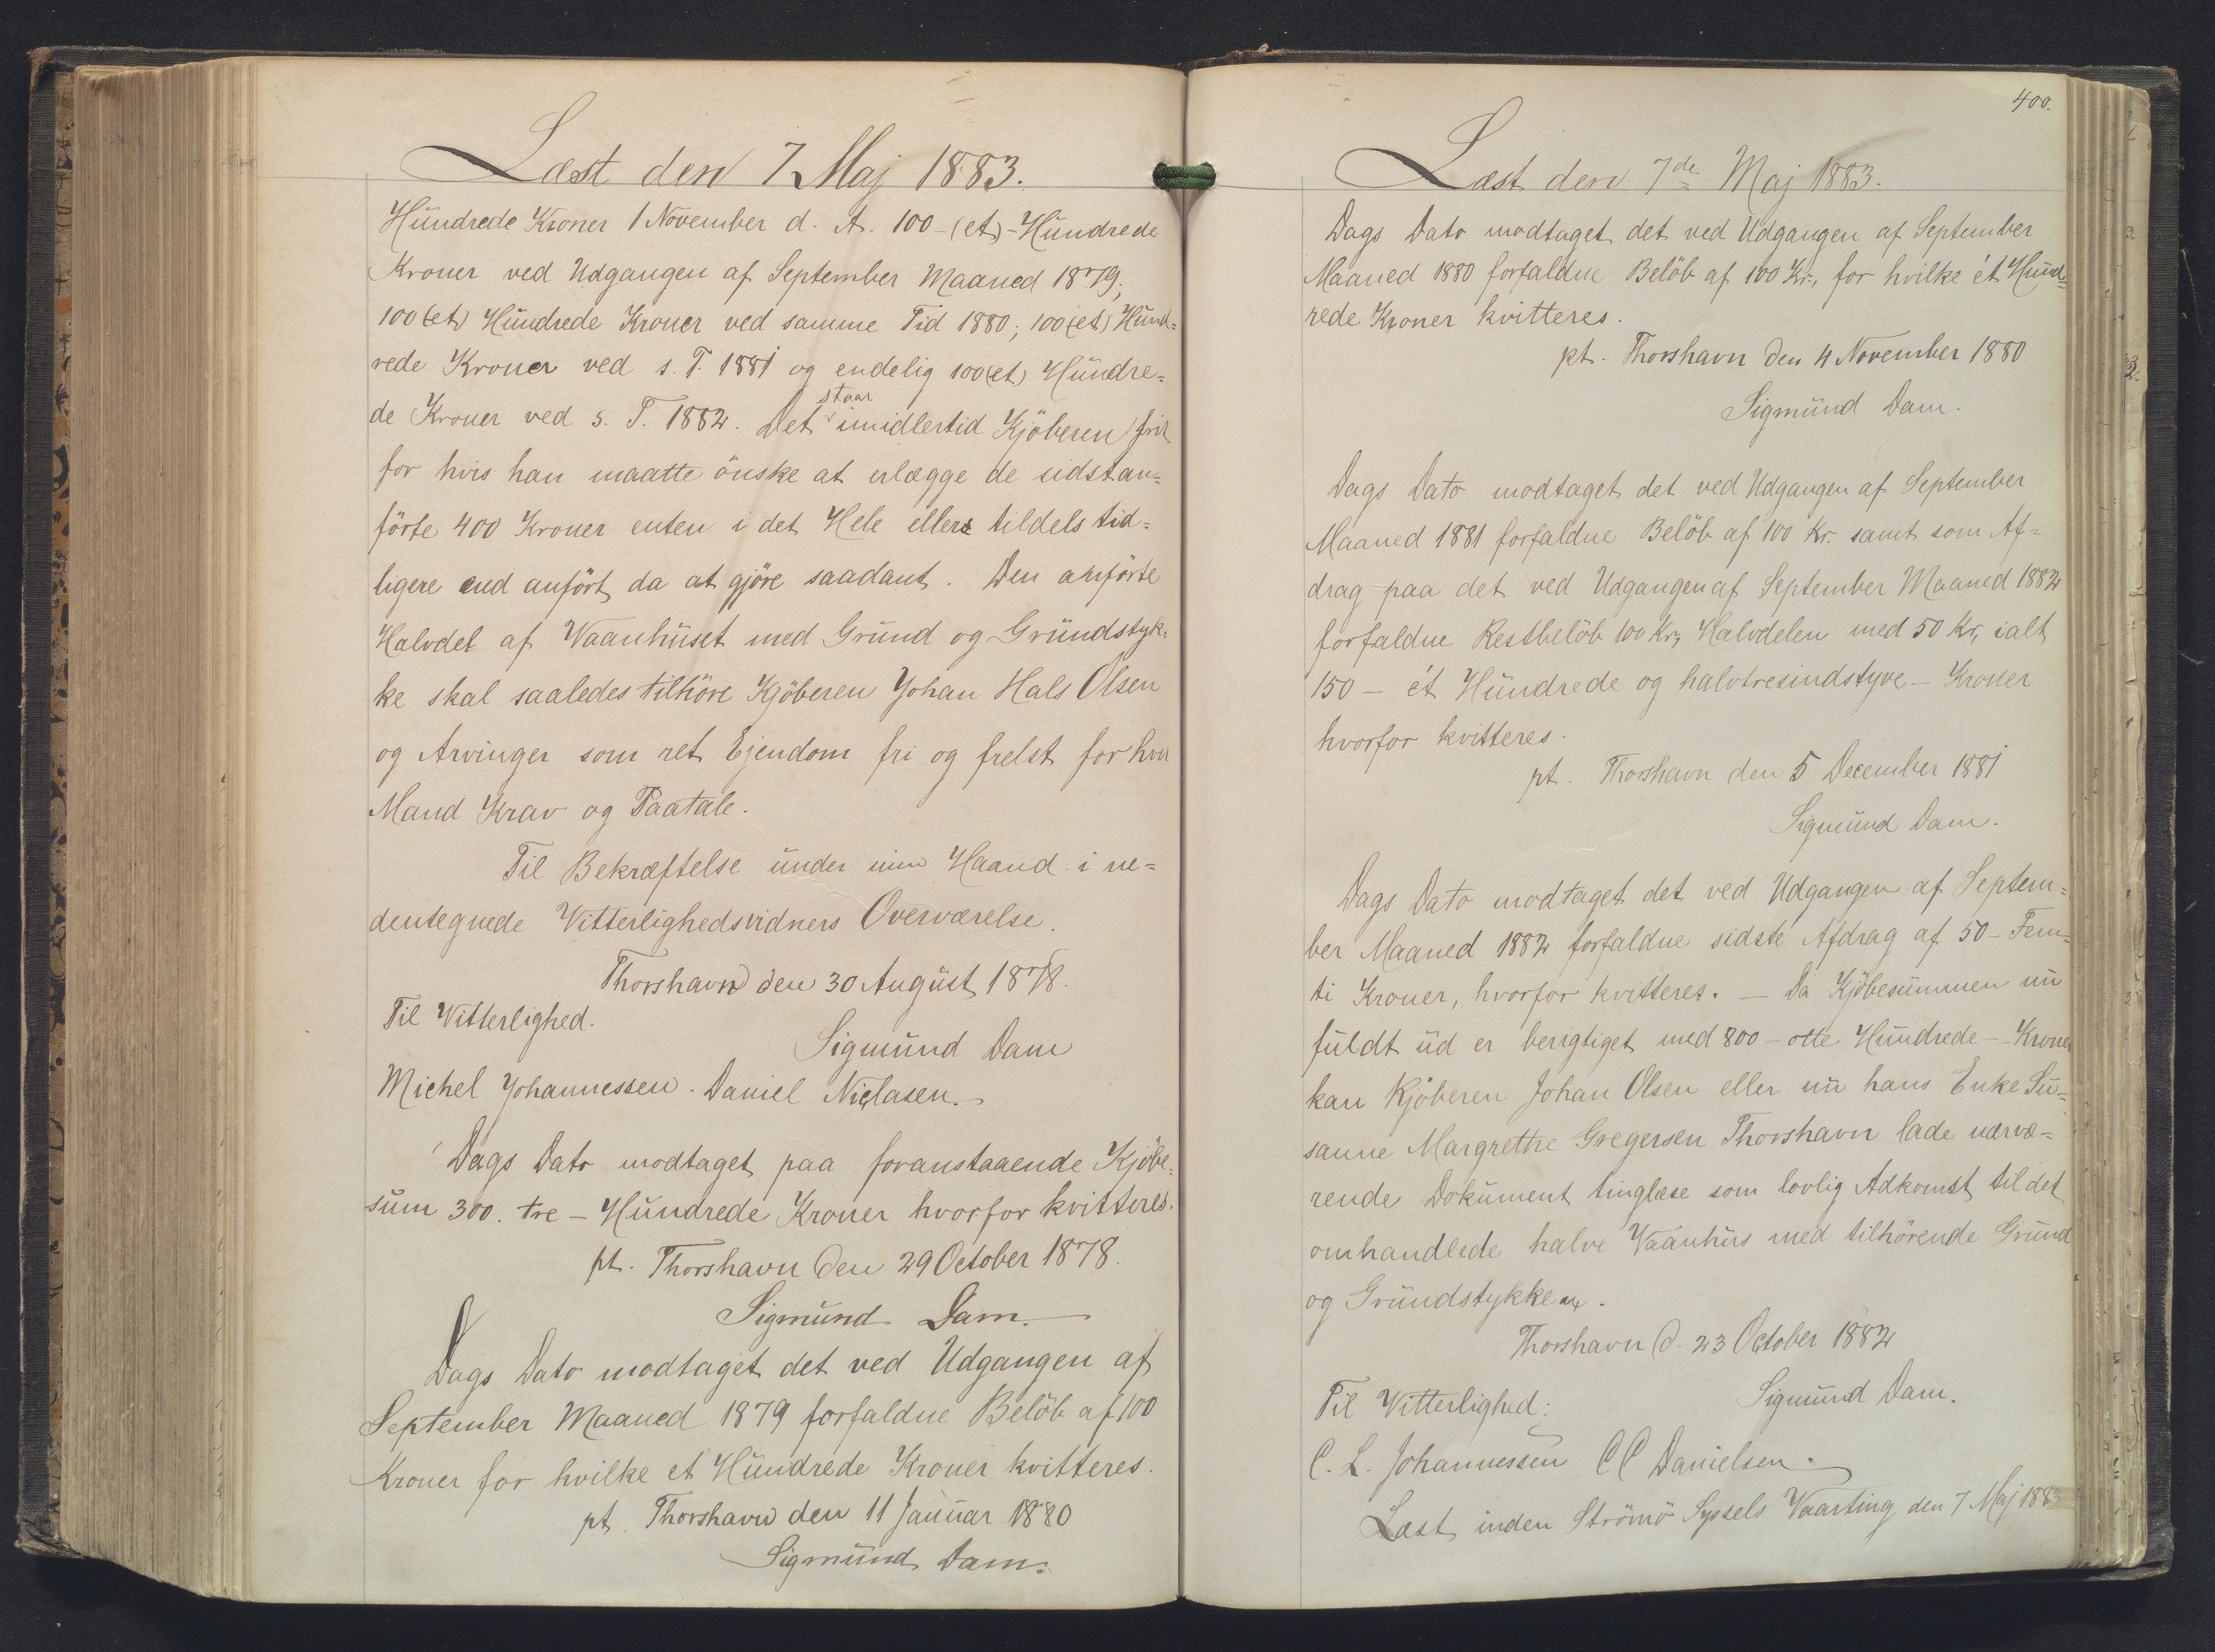 Læst den 7 Maj 1883.
Hundrede Kroner 1 November d. A. 100 - (et) - Hundrede
Kroner ved Udgangen af September Maaned 1879;
100 (et) Hundrede Kroner ved samme Tid 1880; 100 (et) Hund=
rede Kroner ved s. T. 1881 og endelig 100 (et) Hundre=
staar
de Kroner ved s. T. 1882. Det imidlertid Kjöberen frit
for hvis han maatte önske at erlægge de sidstan=
förte 400 Kroner enten i det Hele eller tildels tid=
ligere end anfört da at gjöre saadant. Den anförte
Halvdel af Vaanhuset med Grund og Grundstyk=
ke skal saaledes tilhöre Kjöberen Johan Hals Olsen
og Arvinger som ret Ejendom fri og frelst for hver
Mand Krav og Paatale.
Til Bekræftelse under min Haand i ne=
dentegnede Vitterlighedsvidners Overværelse.
Thorshavn den 30 August 1878.
Til Vitterlighed.
Sigmund Dam
Michel Johannessen. Daniel Niclasen.
Dags Dato modtaget paa foranstaaende Kjöbe=
sum 300. tre - Hundrede Kroner hvorfor kvitteres.
pt. Thorshavn den 29 October 1878.
Sigmund Dam.
Dags Dato modtaget det ved Udgangen af
September Maaned 1879 forfaldne Belöb af 100
Kroner for hvilke et Hundrede Kroner kvitteres.
pt. Thorshavn den 11 Januar 1880
Sigmund Dam.
400.
Læst den 7de Maj 1883.
Dags Dato modtaget det ved Udgangen af September
Maaned 1880 forfaldne Belöb af 100 Kr., for hvilke ét Hund=
rede Kroner kvitteres.
pt. Thorshavn den 4 November 1880
Sigmund Dam.
Dags Dato modtaget det ved Udgangen af September
Maaned 1881 forfaldne Belöb af 100 Kr. samt som Af=
drag paa det ved Udgangen af September Maaned 1882
forfaldne Restbelöb 100 Kr, Halvdelen med 50 Kr, ialt
150 - ét Hundrede og halvtresindstyve - Kroner
hvorfor kvitteres.
pt. Thorshavn den 5 December 1881
Sigmund Dam.
Dags Dato modtaget det ved Udgangen af Septem=
ber Maaned 1882 forfaldne sidste Afdrag af 50 - Fem=
ti Kroner, hvorfor kvitteres. - Da Kjöbesummen nu
fuldt ud er berigtiget med 800 - otte Hundrede - Kroner
kan Kjöberen Johan Olsen eller nu hans Enke Su=
sanne Margrethe Gregersen Thorshavn lade nærvæ=
rende Dokument tinglæse som lovlig Adkomst til det
omhandlede halve Vaanhus med tilhörende Grund
og Grundstykke.
Thorshavn d. 23 October 1882
Til Vitterlighed:
Sigmund Dam.
C. L. Johannessen CC Danielsen.
Læst inden Strömö Syssels Vaarting den 7 Maj 1883